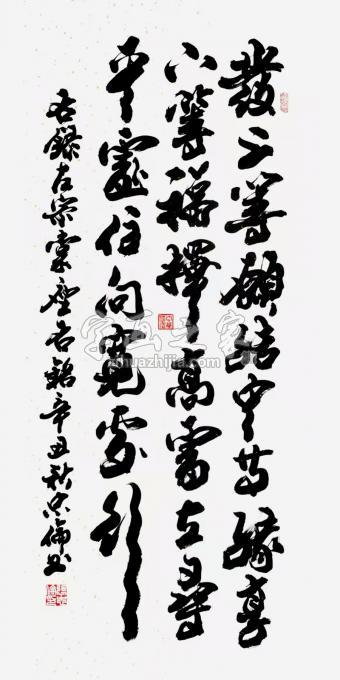 發上等願結中等緣享
下等福擇高處立尋
平處住向寬處行
右錄左宗棠座右銘辛丑秋忠倫书
字画之家
zihuazhijia.com